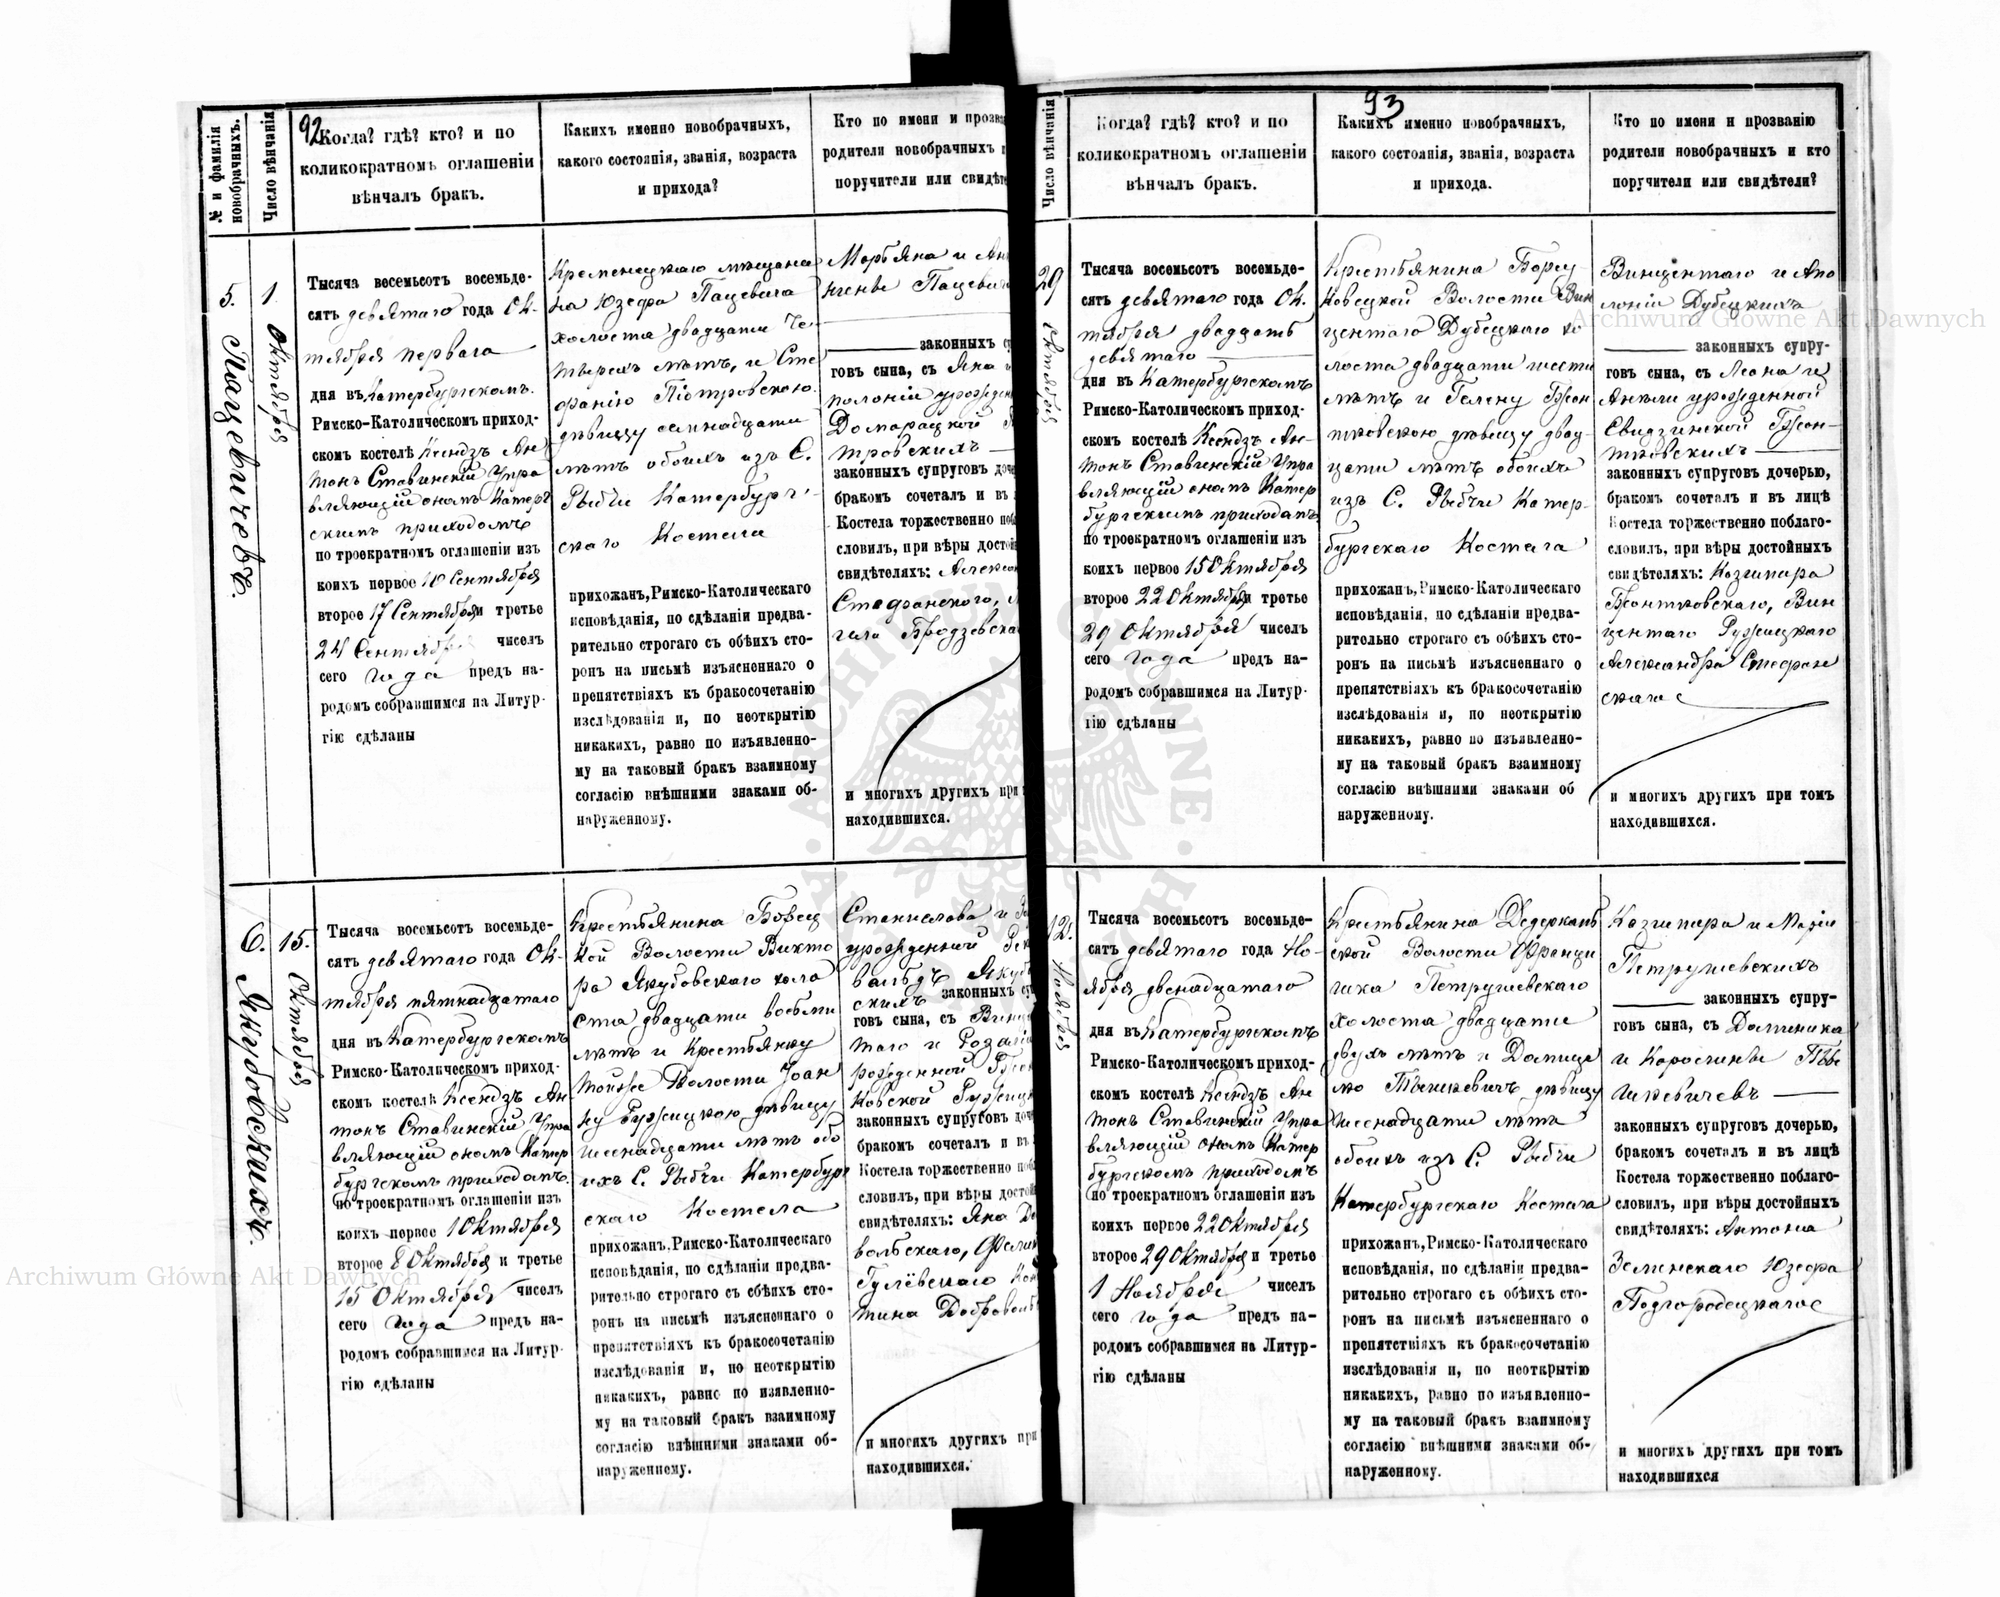 92
№ и фамилія новобрачныхъ.
Число вѣнчанія
Когда? гдѣ? кто? и по
коликократномъ оглашеніи
вѣнчалъ бракъ.
Какихъ именно новобрачныхъ,
какого состоянія, званія, возраста
и прихода?
Кто по имени и
родители новобрачныхъ
поручители или
5.
Пацевичевъ.
1.
Октября
Тысяча восемьсотъ восемьде-
сятъ девятаго года Ок-
тября перваго
дня въ Катербургскомъ
Римско-Католическомъ приход-
скомъ костелѣ Ксендзъ Ан
тонъ Ставинскій Упра
вляющій онымъ Катерб
скимъ приходомъ
по троекратномъ оглашеніи изъ
коихъ первое 10 Сентября
второе 17 Сентября и третье
24 Сентября чиселъ
сего года предъ на-
родомъ собравшимся на Литур-
гію сдѣланы
Кременецкаго мѣщани
на Юзефа Пацевича
холоста двадцати че-
тырехъ лѣтъ, и Сте
фанію Піотровскою
дѣвицу семнадцати
лѣтъ обоихъ изъ С.
Рыбчи Катербург-
скаго Костела
прихожанъ, Римско-Католическаго
исповѣданія, по сдѣланіи предва-
рительно строгаго съ обѣихъ сто-
ронъ на письмѣ изъясненнаго о
препятствіяхъ къ бракосочетанію
изслѣдованія и, по неоткрытію
никакихъ, равно по изъявленно-
му на таковый бракъ взаимному
согласію внѣшними знаками об-
наруженному.
Марьяна и
Пацеви
законныхъ
говъ сына, съ Яна
полоніи
Домарацкой
тровскихъ
законныхъ супруговъ
бракомъ сочеталъ и въ
Костела торжественно
словилъ, при вѣры
свидѣтеляхъ:
Стефанского,
Бродзевска
и многихъ другихъ при
находившихся.
6.
Якубовскихъ.
15.
Октября
Тысяча восемьсотъ восемьде-
сятъ девятаго года Ок-
тября пятнадцатаго
дня въ Катербургскомъ
Римско-Католическомъ приход-
скомъ костелѣ Ксендзъ Ан
тонъ Ставинскій Упра
вляющій онымъ Катер
бургскомъ приходомъ
по троекратномъ оглашеніи изъ
коихъ первое 1 Октября
второе 8 Октября и третье
15 Октября чиселъ
сего года предъ на-
родомъ собравшимся на Литур-
гію сдѣланы
Крестьянина Борец
кой Волости Викто
ра Якубовскаго холо
ста двадцати восьми
лѣтъ и Крестьянку
тойже Волости Іоан
ну Ружицкою дѣвицу
шеснадцати лѣтъ обо
ихъ С. Рыбчи Катербург
скаго Костела
прихожанъ, Римско-Католическаго
исповѣданія, по сдѣланіи предва-
рительно строгаго съ обѣихъ сто-
ронъ на письмѣ изъясненнаго о
препятствіяхъ къ бракосочетанію
изслѣдованія и, по неоткрытію
никакихъ, равно по изявленно-
му на таковый бракъ взаимному
согласію внѣшними знаками об-
наруженному.
Станислова и
урожденной
вальдъ
скихъ законныхъ
говъ сына, съ
таго и Розаліи
рожденной
ковской
законныхъ супруговъ
бракомъ сочеталъ и въ
Костела торжественно
словилъ, при вѣры
свидѣтеляхъ: Яна
вольскаго,
Гулёвскаго
тина Добровол
и многихъ другихъ при
находившихся.
93
Число вѣнчанія
Когда? гдѣ? кто? и по
коликократномъ оглашеніи
вѣнчалъ бракъ.
Какихъ именно новобрачныхъ,
какого состоянія, званія, возраста
и прихода.
Кто по имени и прозванію
родители новобрачныхъ и кто
поручители или свидѣтели?
29
Октября
Тысяча восемьсотъ восемьде-
сятъ девятаго года Ок-
тября двадцать
девятаго
дня въ Катербургскомъ
Римско-Католическомъ приход-
скомъ костелѣ Ксендзъ Ан-
тонъ Ставинскій Упра
вляющій онымъ Катер
бургскимъ приходомъ
по троекратномъ оглашеніи изъ
коихъ первое 15 Октября
второе 22 Октября и третье
29 Октября чиселъ
сего года предъ на-
родомъ собравшимся на Литур-
гію сдѣланы
Крестьянина
Волости Вин
центаго Дубецкаго хо
лоста двадцати шести
лѣтъ и Гелену Бжон
тковскою дѣвицу двад-
цати лѣтъ обоихъ
изъ С. Рыбчи Катер-
бургскаго Костела
прихожанъ, Римско-Католическаго
исповѣданія, по сдѣланіи предва-
рительно строгаго съ обѣихъ сто-
ронъ на письмѣ изъясненнаго о
препятствіяхъ къ бракосочетанію
изслѣдованія и, по неоткрытію
никакихъ, равно по изъявленно-
му на таковый бракъ взаимному
согласію внѣшними знаками об
наруженному.
Винцентаго и Апо
лоніи Дубецкихъ
законныхъ супру-
говъ сына, съ Леона и
Анели урожденной
Свидзинской Бжон-
тковскихъ
законныхъ супруговъ дочерью,
бракомъ сочеталъ и въ лицѣ
Костела торжественно поблаго-
словилъ, при вѣры достойныхъ
свидѣтеляхъ: Козимира
Бжонтковскаго, Вин
центаго Ружицкаго
Александра Стефан
скаго
и многихъ другихъ при томъ
находившихся.
12.
Ноября
Тысяча восемьсотъ восемьде-
сятъ девятаго года Но-
ября двенадцатаго
дня въ Катербургскомъ
Римско-Католическомъ приход-
скомъ костелѣ Ксендзъ Ан
тонъ Ставинскій Упра
вляющій онымъ Катер
бургскомъ приходомъ
по троекратномъ оглашеніи изъ
коихъ первое 22 Октября
второе 29 Октября и третье
1 Ноября чиселъ
сего года предъ на-
родомъ собравшимся на Литур-
гію сдѣланы
Крестьянина Дедеркаль
ской Волости Франци
шка Петрушевскаго
холоста двадцати
двухъ лѣтъ и Домице
лю дѣвицу
шеснадцати лѣтъ
обоихъ изъ С. Рыбчи
Катербургскаго Костела
прихожанъ, Римско-Католическаго
исповѣданія, по сдѣланіи предва-
рительно строгаго съ обѣихъ сто-
ронъ на письмѣ изъясненнаго о
препятствіяхъ къ бракосочетанію
изслѣдованія и, по неоткрытію
никакихъ, равно по изъявленно-
му на таковый бракъ взаимному
согласію внѣшними знаками об-
наруженному.
Козимира и Маріи
Петрушевскихъ
законныхъ супру-
говъ сына, съ Доминика
и Каролины
законныхъ супруговъ дочерью,
бракомъ сочеталъ и въ лицѣ
Костела торжественно поблаго-
словилъ, при вѣры достойныхъ
свидѣтеляхъ: Антона
Зелинскаго Юзефа
Подгородецкаго
и многихъ другихъ при томъ
находившихся
Archiwum Główne Akt Dawnych
Archiwum Główne Akt Dawnych